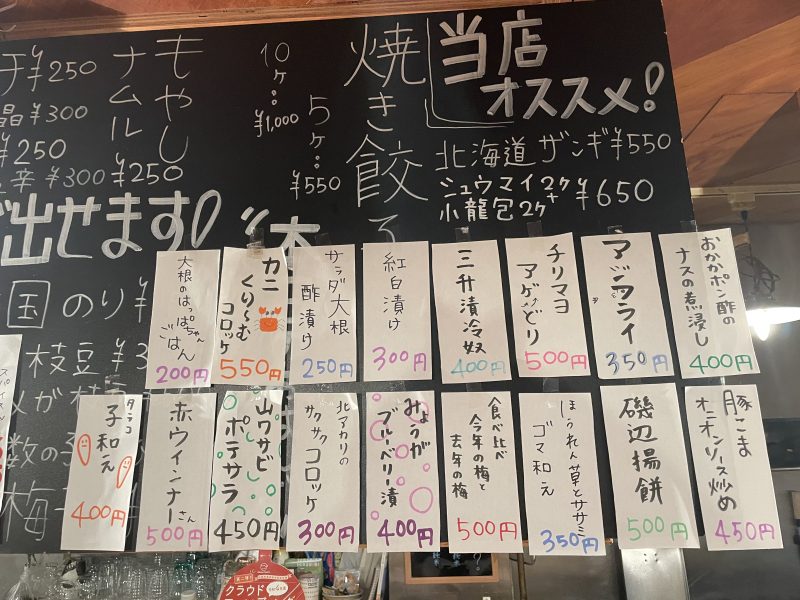 当店
オススメ!
北海道 ザンギ ¥550
シュウマイ2ケ+
小龍包2ケ ¥650
焼き餃子
5ケ:
¥550
10ケ:
¥1,000
もやし
ナムル
¥250
¥250
¥300
¥250
辛 ¥300
出せます!
国 のり ¥
枝豆 ¥3
数の子
梅
おかかポン酢の
ナスの煮浸し
400円
アジフライ
350円
チリマヨ
アゲどり
500円
三升漬冷奴
400円
紅白漬け
300円
サラダ大根
酢漬け
250円
カニ
くり〜む
コロッケ
550円
大根のはっぱちゃん
ごはん
200円
豚こま
オニオンソース炒め
450円
磯辺揚餅
500円
ほうれん草とササミ
ゴマ和え
350円
食べ比べ
今年の梅と
去年の梅
500円
みょうが
ブルーベリー漬
400円
北アカリの
サクサクコロッケ
300円
山ワサビ
ポテサラ
450円
赤ウィンナーさん
500円
タラコ
子和え
400円
クラウド